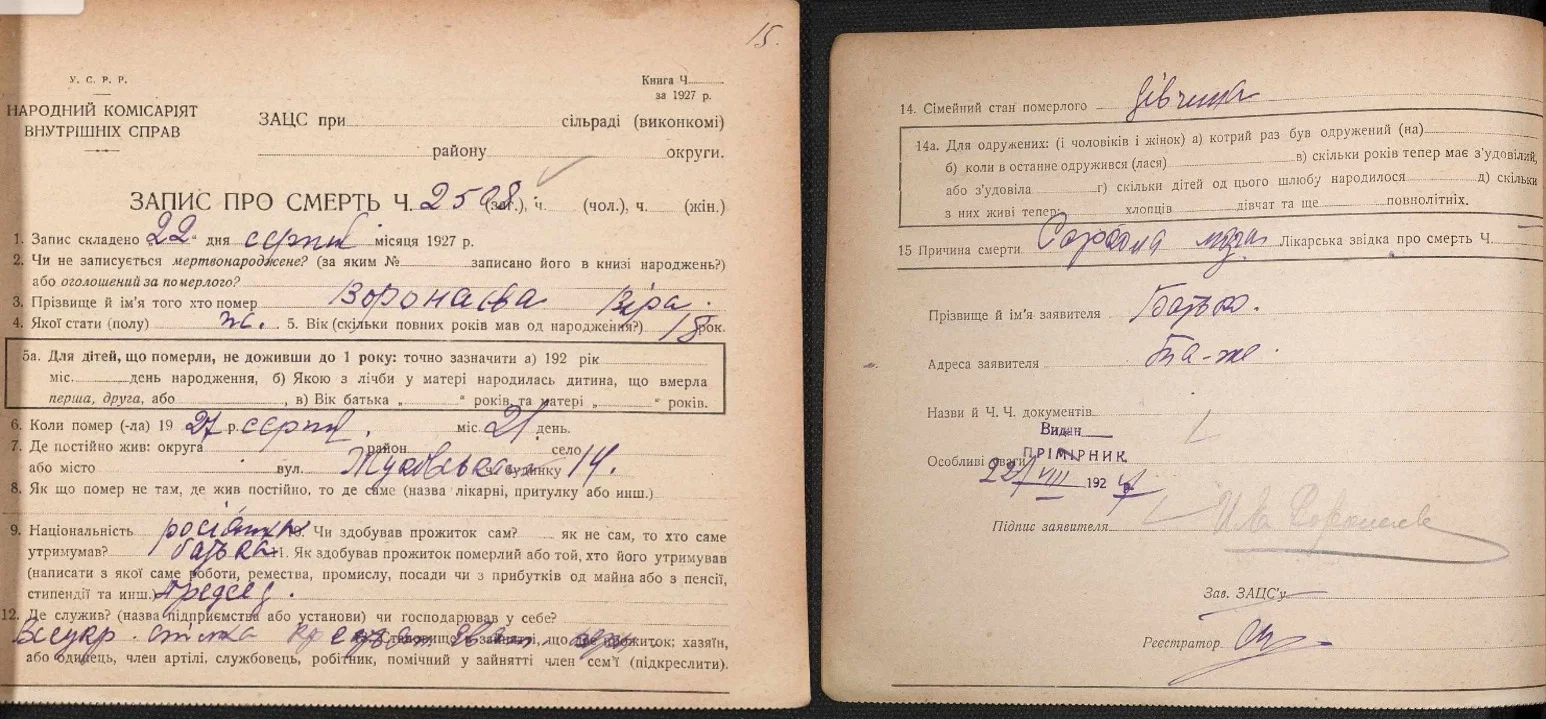 15.
У. С. Р. Р.
НАРОДНИЙ КОМІСАРІЯТ
ВНУТРІШНІХ СПРАВ
Книга Ч.
за 1927 р.
ЗАЦС при сільраді (виконкомі)
району округи.
ЗАПИС ПРО СМЕРТЬ Ч. 2598 (заг.), ч. (чол.), ч. (жін.)
1. Запис складено „22“ дня серпня місяця 1927 р.
2. Чи не записується мертвонароджене? (за яким № записано його в книзі народжень?)
або оголошений за померлого?
3. Прізвище й ім'я того хто помер Воронаєва Віра.
4. Якої стати (полу) ж. 5. Вік (скільки повних років мав од народження?) рок.
5а. Для дітей, що померли, не доживши до 1 року: точно зазначити а) 192 рік
міс. день народження, б) Якою з лічби у матері народилась дитина, що вмерла
перша, друга, або , в) Вік батька „ “ років та матері „ “ років.
6. Коли помер (-ла) 19 27 р. серпня. міс. 21 день.
7. Де постійно жив: округа район село
або місто вул. ч. будинку 14.
8. Як що помер не там, де жив постійно, то де саме (назва лікарні, притулку або инш.)
9. Національність росіянка 10. Чи здобував прожиток сам? як не сам, то хто саме
утримував? батька 11. Як здобував прожиток померлий або той, хто його утримував
(написати з якої саме роботи, ремества, промислу, посади чи з прибутків од майна або з пенсії,
стипендії та инш.) Председ.
12. Де служив? (назва підприємства або установи) чи господарював у себе?
Всеукр. Становище в зайнятті, що дає прожиток: хазяїн,
або одинець, член артілі, службовець, робітник, помічний у зайнятті член сем'ї (підкреслити).
14. Сімейний стан померлого дівчина
14а. Для одружених: (і чоловіків і жінок) а) котрий раз був одружений (на)
б) коли в останнє одружився (лася) в) скільки років тепер має з'удовілий,
або з'удовіла г) скільки дітей од цього шлюбу народилося д) скільки
з них живі тепер: хлопців дівчат та ще повнолітніх.
15 Причина смерти Саркома Лікарська звідка про смерть Ч.
Прізвище й ім'я заявителя Батько.
Адреса заявителя Та-же.
Назви й Ч. Ч. документів
Видан
ПРІМІРНИК
Особливі уваги
22/VIII 1927
Підпис заявителя
Зав. ЗАЦС'у
Реєстратор